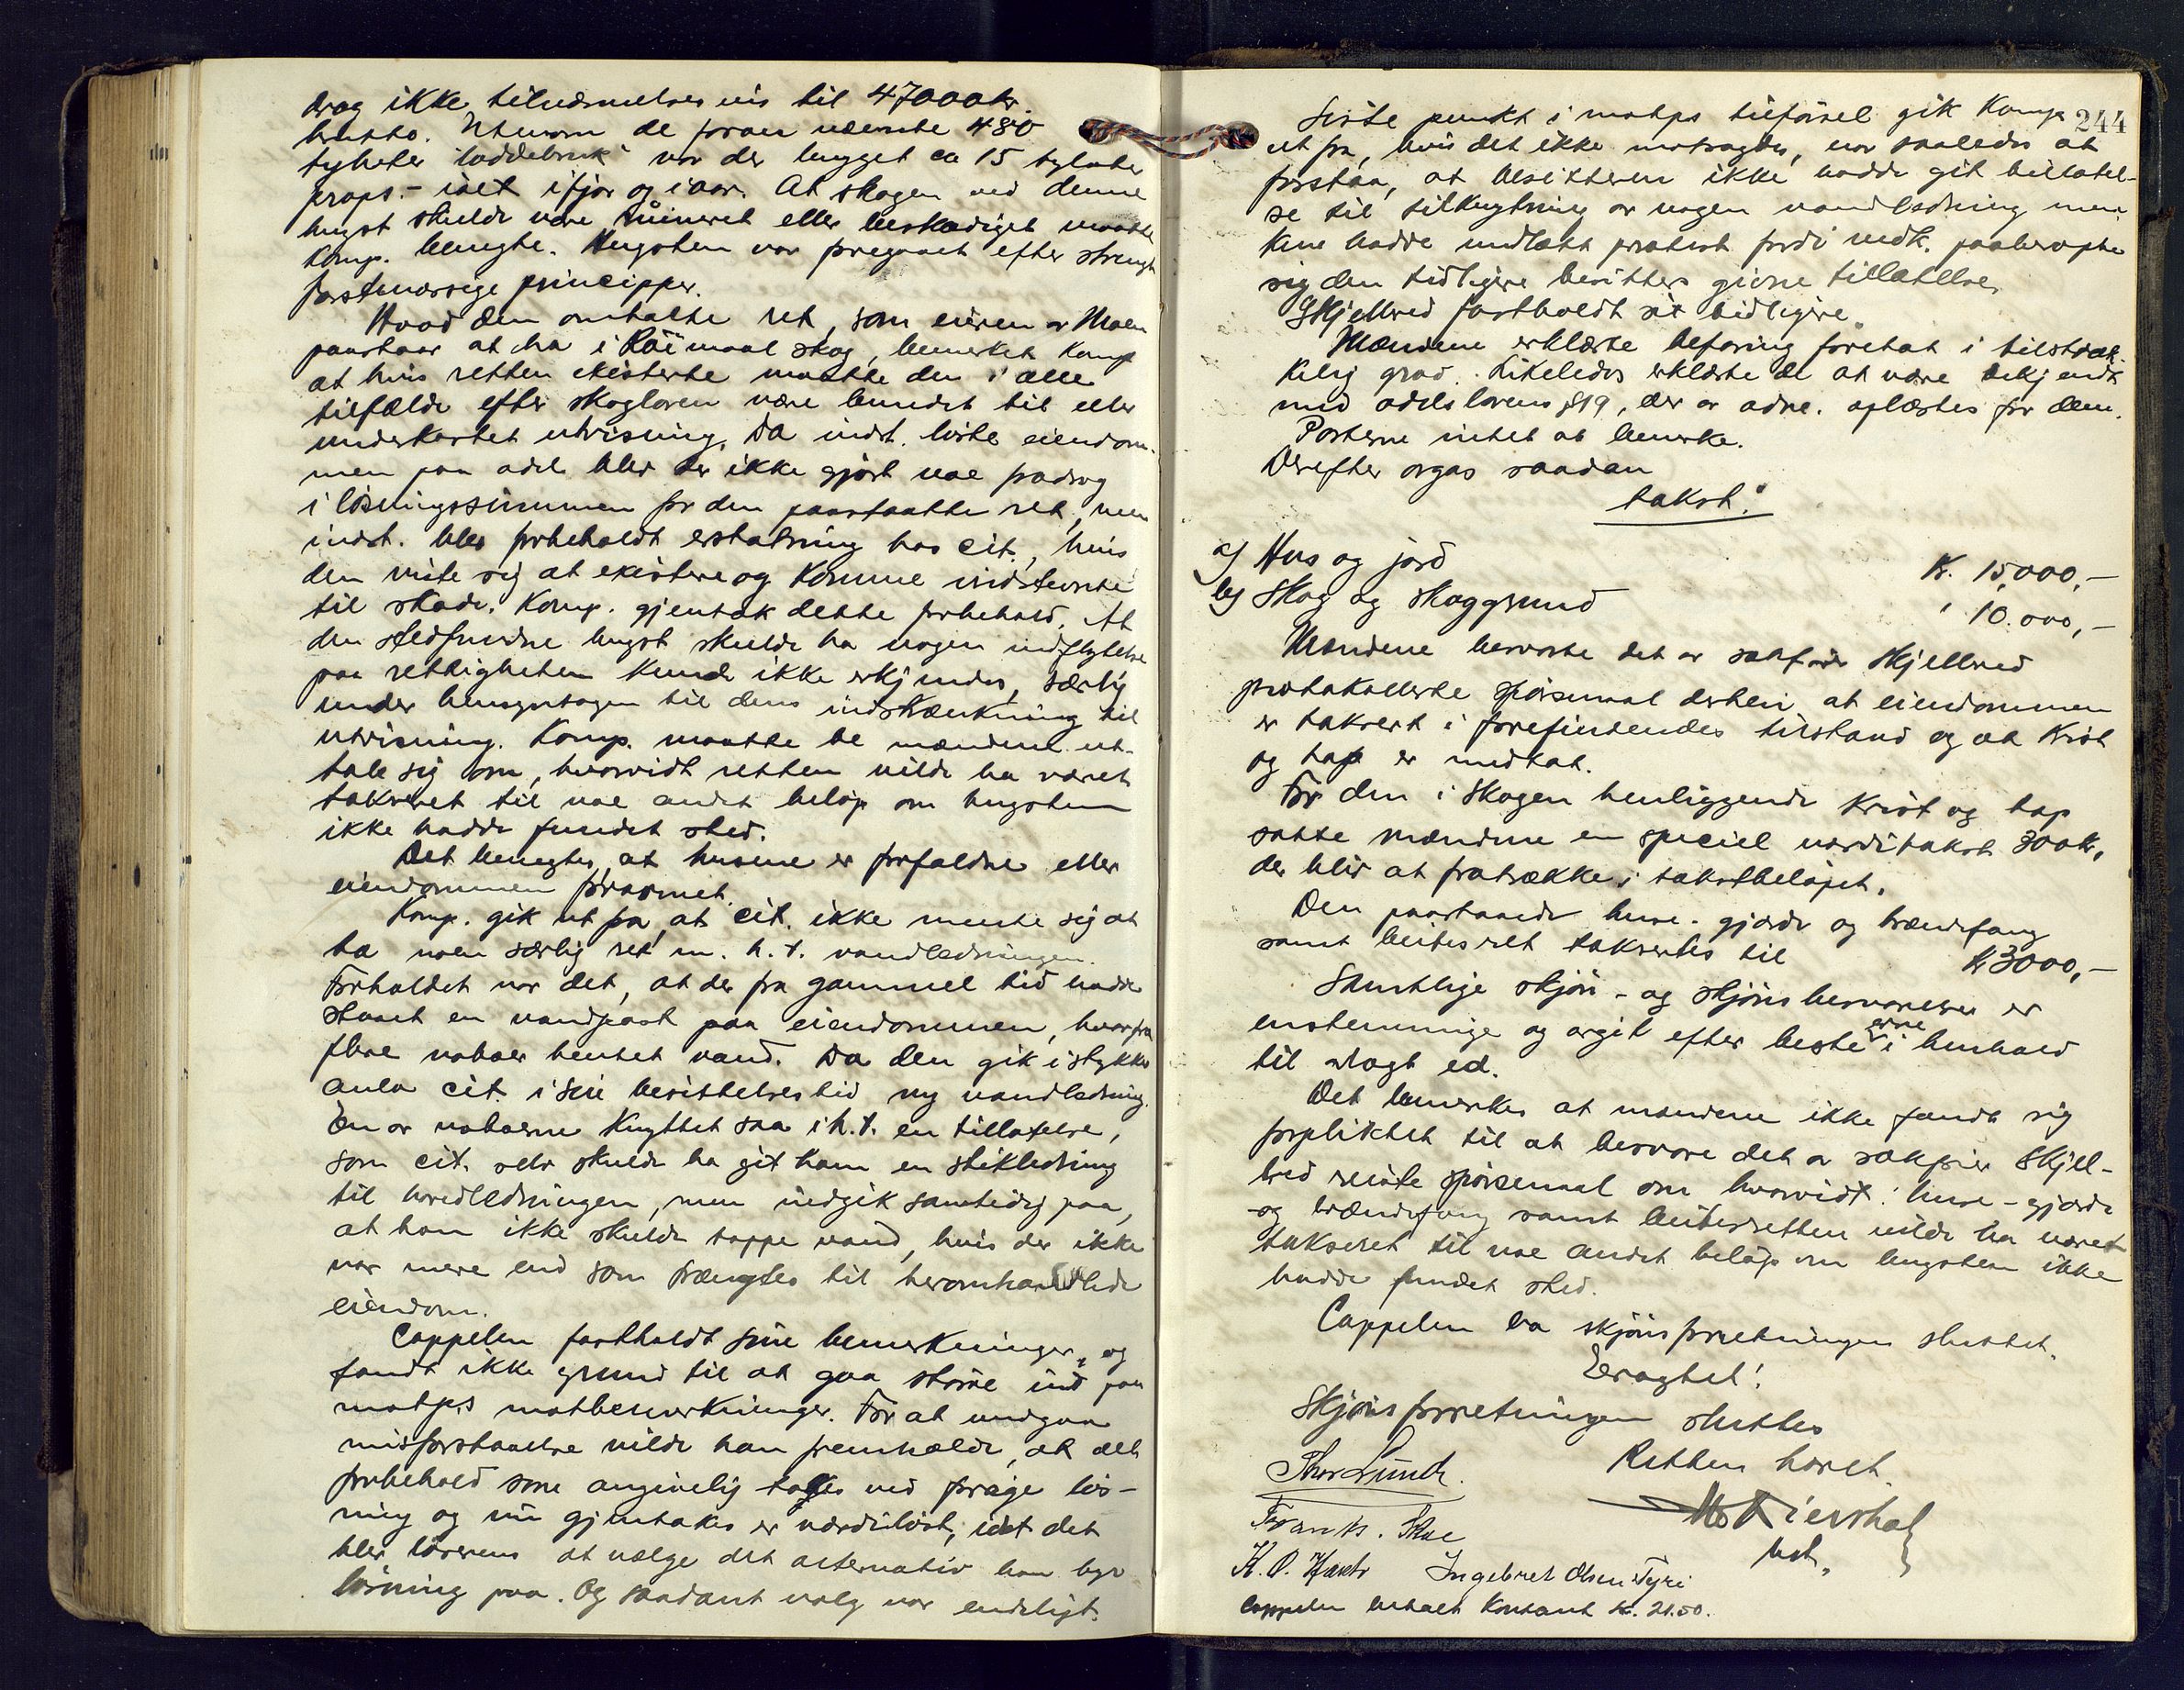 drog ikke tilnærmelsesvis til 47000 kr.
brutto. Utenom de foran nævnte 480
tylvter "loddebruk" var der hugget ca 15 tylvter
props. - ialt ifjor og iaar. At skogen ved denne
hugst skulde være ruineret eller beskadiget maatte
Komp. benegte. Hugsten var foregaaet efter strengt
forstmæssige principper.
Hvad den omtalte ret, som eieren av Moen
paastaar at ha i Raimaal skog, bemerket Komp
at hvis retten eksisterte maatte den i alle
tilfælde efter skogloven være bundet til eller
underkastet utvisning. Da indst. løste eiendom-
men paa odel blev der ikke gjort noe fradrag
i løsningssummen for den paastaatte ret, men
indst. blev forbeholdt erstatning hos cit., hvis
den viste sig at eksistere og komme indstevnte
til skade. Komp. gjentok dette forbehold. At
den stedfundne hugst skulde ha nogen indflytelse
paa rettigheten kunde ikke erkjendes, særlig
under hensyntagen til dens indskrænkning til
utvisning. Komp. maatte be mændene ut-
tale sig om, hvorvidt retten vilde ha været
taksert til noe andet beløp om hugsten
ikke hadde fundet sted.
Det benegtes, at husene er forfaldne eller
eiendommen forarmet.
Komp. gik ut fra, at cit. ikke mente sig at
ha noen særlig ret m. h. t. vandledningen.
Forholdet var det, at der fra gammel tid hadde
staaet en vandpost paa eiendommen, hvorfra
flere naboer hentet vand. Da den gik istykker
anla cit. i sin besittelsestid ny vandledning.
En av naboerne knyttet saa i h. t. en tillatelse,
som cit. selv skulde ha git ham en stikledning
til hovedledningen, men indgik samtidig paa,
at han ikke skulde tappe vand, hvis der ikke
var mere end som trængtes til heromhandlede
eiendom.
Cappelen fastholdt sine bemerkninger, og
fandt ikke grund til at gaa större ind paa
motp.s motbemerkninger. For at undgaa
misforstaaelse vilde han fremholde, at det
forbehold som angivelig toges ved forrige løs-
ning og nu gjentakes er værdiløst, idet det
blev løserens at vælge det alternativ han byr
løsning paa. Og saadant valg var endeligt.
244
Siste punkt i motps tilførsel gik Komp
ut fra, hvis det ikke motsagdes, var saaledes at
forstaa, at besitteren ikke hadde git tillatel-
se til tilknytning av nogen vandledning men
kun hadde undlatt protest fordi vedk. paaberopte
sig den tidligere besitters givne tillatelse.
Skjelbred fastholdt sit tidligere.
Mændene erklærte befaring foretat i tilstræk-
kelig grad. Likeledes erklærte de at være bekjendt
med odelslovens § 19, der av adm. oplæstes for dem.
Parterne intet at bemerke.
Derefter avgas saadan
takst:
a) Hus og jord Kr. 15,000,-
b) Skog og skoggrund " 10.000,-
Mændene besvarte det av sakfører Skjelbred
protokollerte spörsmaal derhen at eiendommen
er taksert i forefindendes tilstand og at kvist
og tap er medtat.
For den i skogen henliggende kvist og tap
satte mændene en speciel værditakst 300 kr,
der blir at fratrække i takstbeløpet.
Den paastaaede huse- gjærde og brændefang
samt beitesret taksertes til Kr 3000,-
Samtlige skjøn- og skjønsbesvarelser er
enstemmige og avgit efter beste evne i henhold
til avlagt ed.
Det bemerkes at mændene ikke fandt sig
forpliktet til at besvare det av sakfører Skjel-
bred reiste spörsmaal om hvorvidt huse- gjærde
- og brændefang samt beitesretten vilde ha været
taksert til noe andet beløp om hugsten ikke
hadde fundet sted.
Cappelen ba skjønsforretningen sluttet.
Eragtet!
Skjønsforretningen sluttes
Retten hævet
Thor Lunde.
Frants. Skoe
K. O. Ingebret Olsen Fyri
Cappelen betalt kontant kr. 21.50.